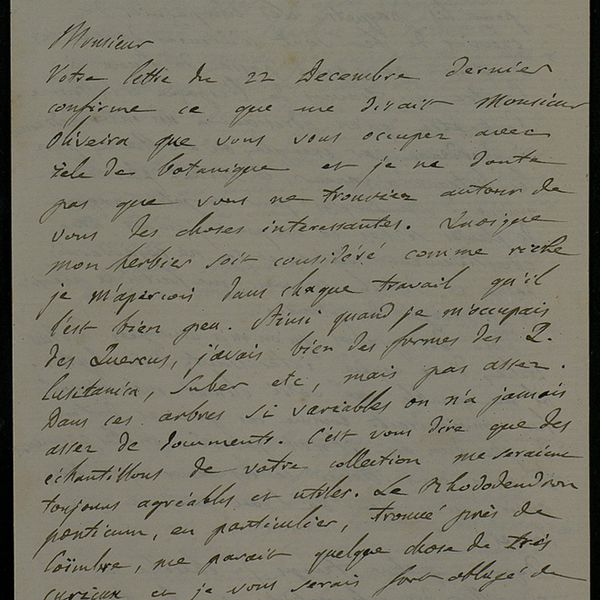 Monsieur
Votre lettre du 22 Decembre dernier
confirme ce que me disait Monsieur
Oliveira que vous vous occupez avec
zele de botanique et je ne doute
pas que vous ne trouviez autour de
vous des choses interessantes. Quoique
mon herbier soit considéré comme riche
je m'aperçois dans chaque travail qu'il
l'est bien peu. Ainsi quand je m'occupais
des Quercus, j'avais bien des formes des Q.
Lusitanica, Suber etc, mais pas assez.
Dans ces arbres si variables on n'a jamais
assez de documents. C'est vous dire que des
échantillons de votre collection me seraient
toujours agréables et utiles. Le Rhododendron
ponticum, en particulier, trouvé près de
Coïmbre, me parait quelque chose de très
curieux et je vous serais fort obligé de